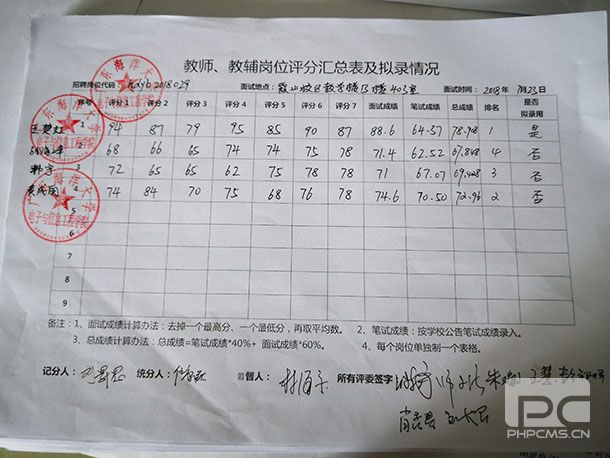 教师、教辅岗位评分汇总表及拟录情况
招聘岗位代码 2018029 面试地点：霞山校区教学楼 403室 面试时间：2018年 7月23日
序号 评分1 评分2 评分3 评分4 评分5 评分6 评分7 面试成绩 笔试成绩 总成绩 排名 是否拟录用
1 94 87 79 95 85 90 87 88.6 64.37 78.908 1 是
2 68 66 65 74 74 75 78 71.4 62.52 67.848 4 否
3 韩宇 72 65 65 62 75 78 78 71 67.07 69.428 3 否
4 74 84 70 75 68 76 78 74.6 70.50 72.96 2 否
5
6
7
8
9
备注：1、面试成绩计算办法：去掉一个最高分、一个最低分，再取平均数。 2、笔试成绩：按学校公告笔试成绩录入。
3、总成绩计算办法：总成绩=笔试成绩*40%+ 面试成绩*60%。 4、每个岗位单独制一个表格。
记分人： 统分人： 监督人： 所有评委签字
广东海洋大学
电子与信息工程学院
PC
PHPCMS.CN